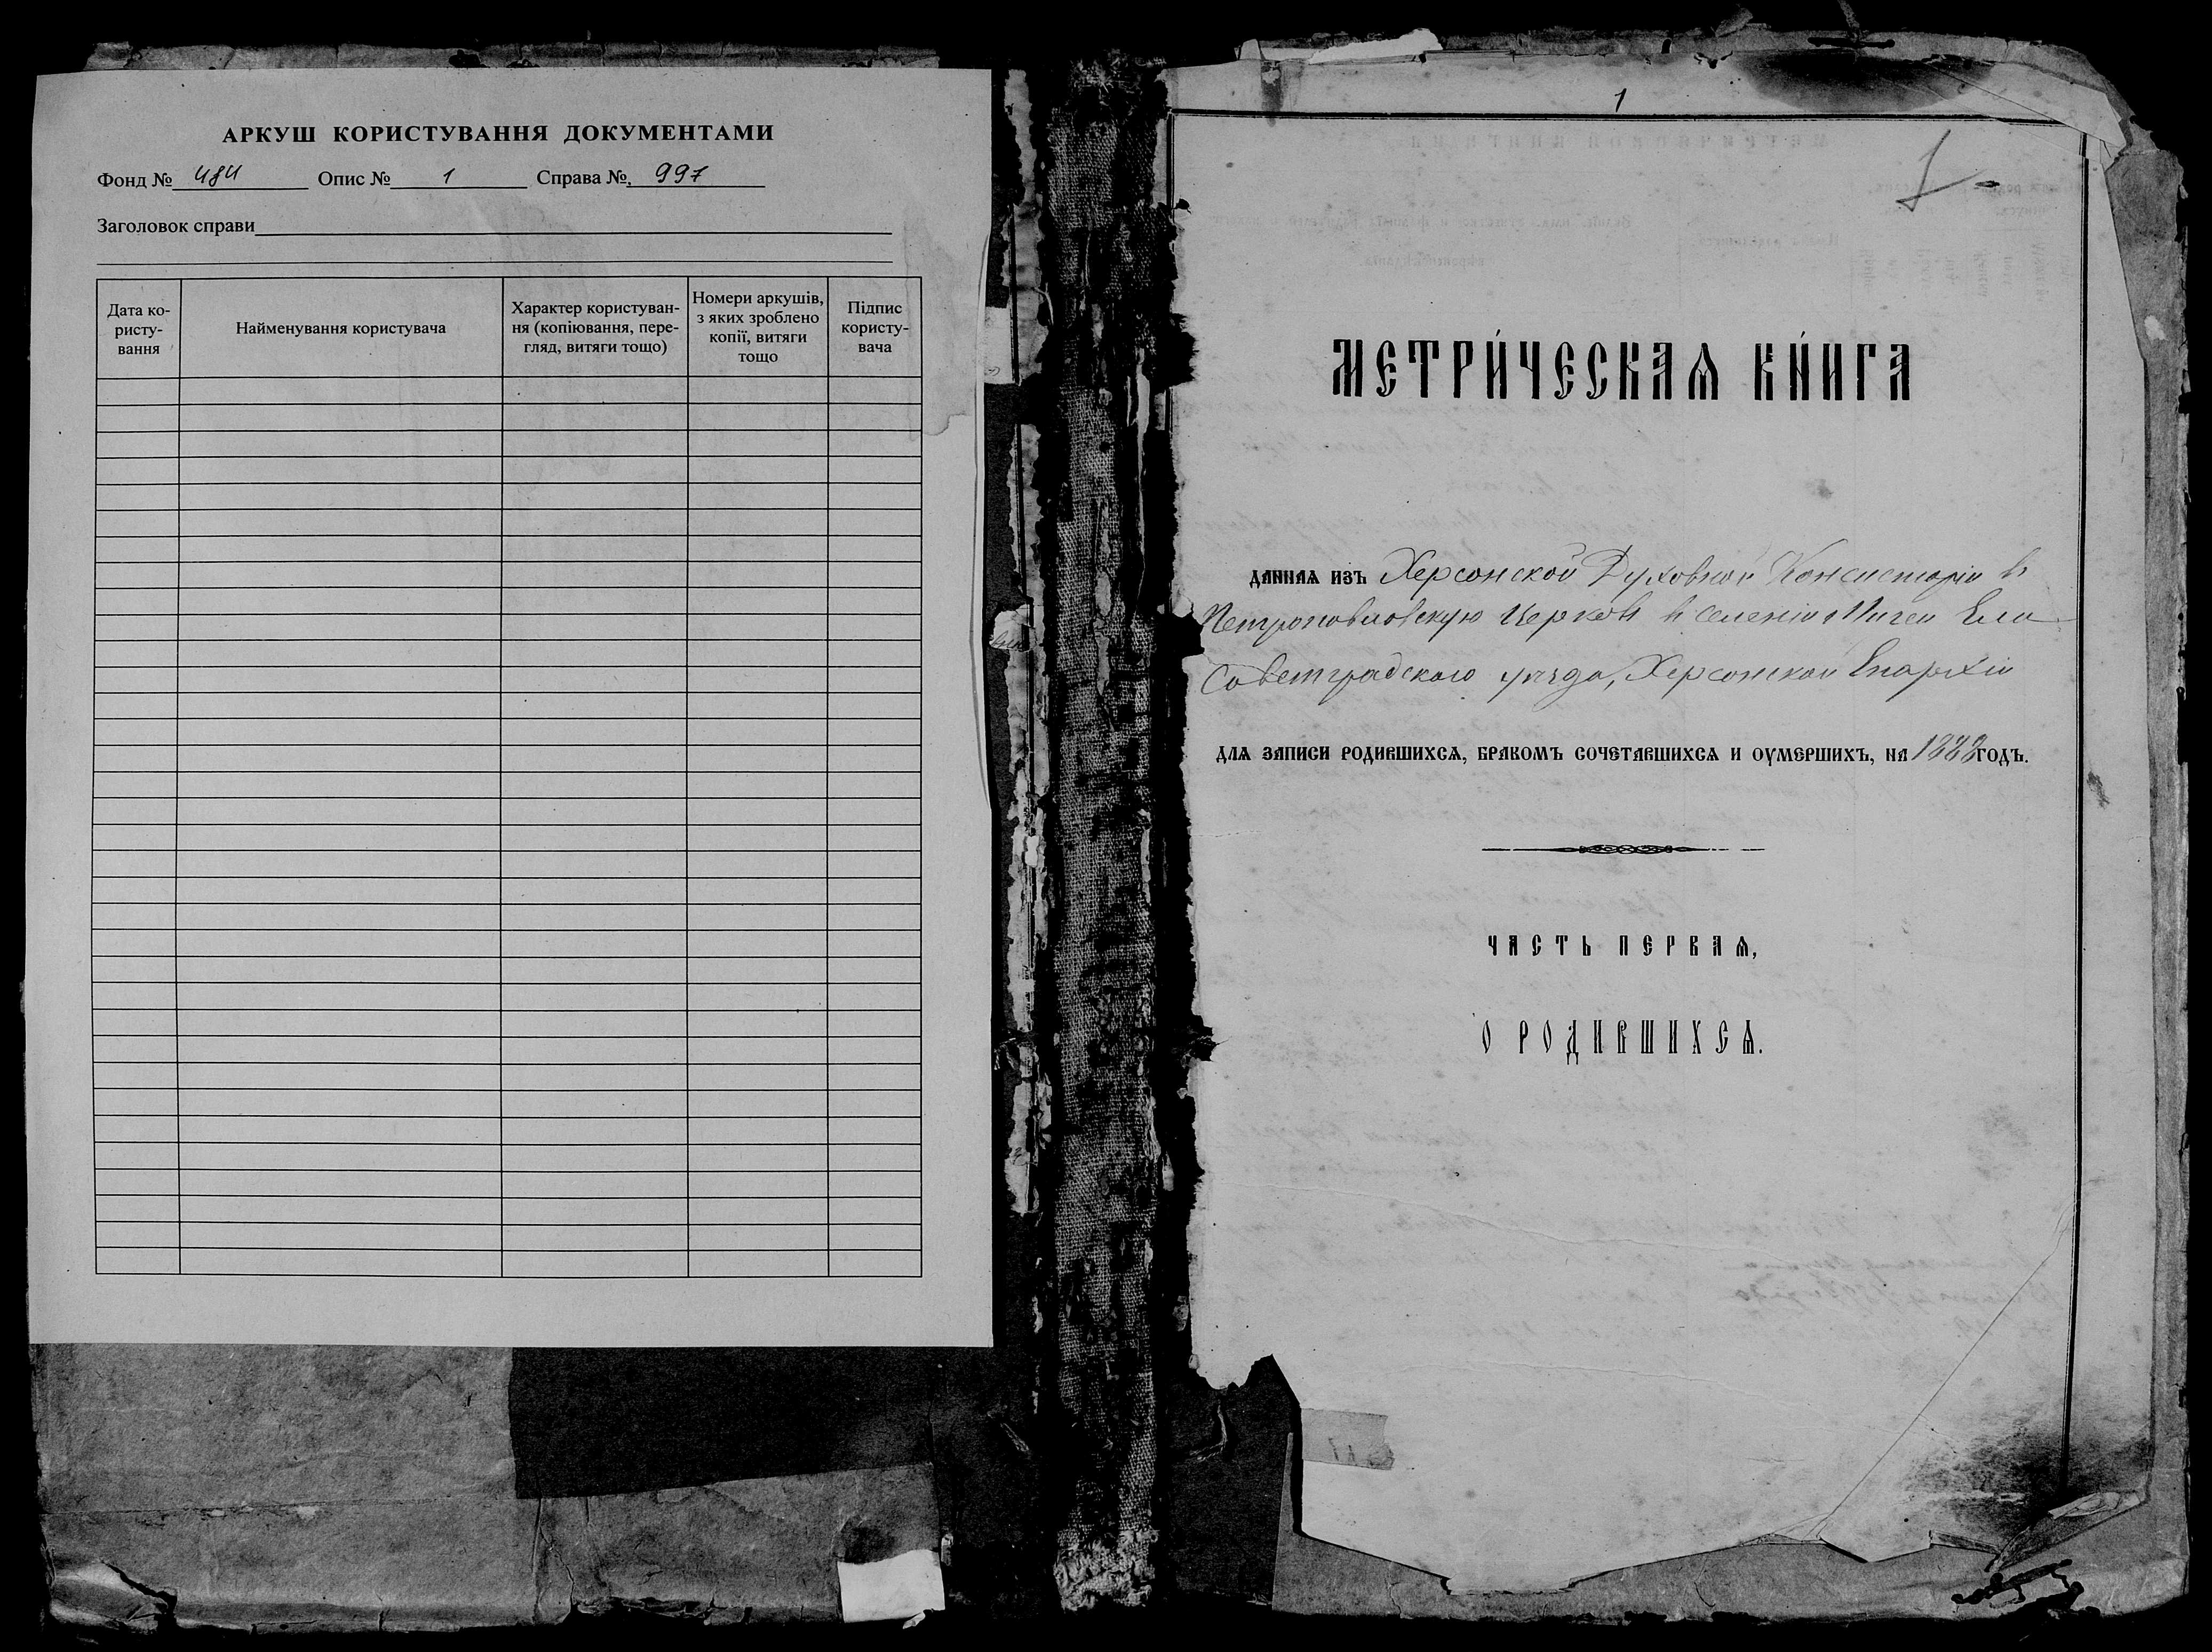 АРКУШ КОРИСТУВАННЯ ДОКУМЕНТАМИ
Фонд № 484 Опис № 1 Справа № 997
Заголовок справи
Дата ко-
ристу-
вання
Найменування користувача
Характер користуван-
ня (копіювання, пере-
гляд, витяги тощо)
Номери аркушів,
з яких зроблено
копії, витяги
тощо
Підпис
користу-
вача
1
МЕТРИ́ЧЕСКАѦ КНИ́ГА
ДАННАѦ ИЗЪ Херсонской Духовной Консисторіи въ
Петропавловскую Церковь в селеніи Ели
саветградского уѣзда, Херсонской Епархіи
ДЛѦ ЗАПИСИ РОДИВШИХСѦ, БРАКОМЪ СОЧЕТАВШИХСѦ И ОУМЕРШИХЪ, НА 1888 ГОДЪ.
ЧАСТЬ ПЕРВАѦ,
О РОДИВШИХСѦ.